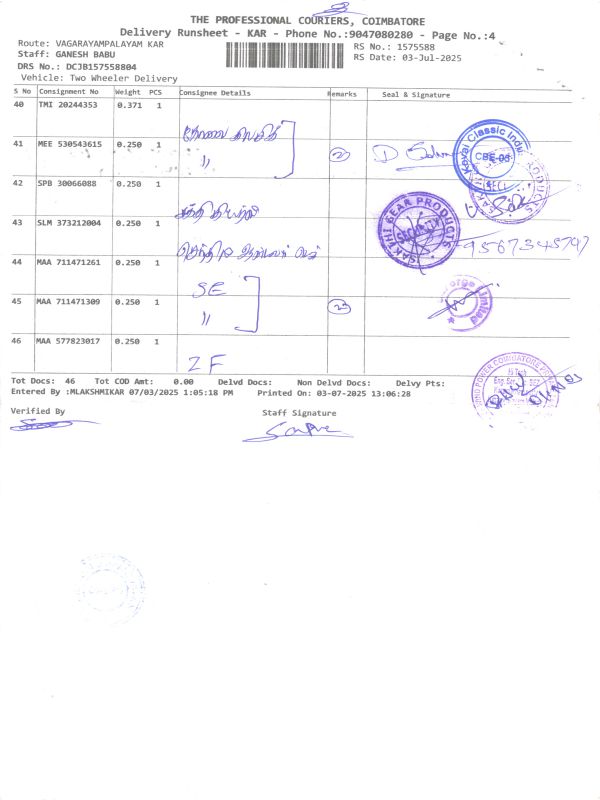 THE PROFESSIONAL COURIERS, COIMBATORE
Delivery Runsheet - KAR - Phone No.:9047080280 - Page No.:4
Route: VAGARAYAMPALAYAM KAR
RS No.: 1575588
Staff: GANESH BABU
RS Date: 03-Jul-2025
DRS No.: DCJB157558804
Vehicle: Two Wheeler Delivery
S No Consignment No Weight PCS Consignee Details Remarks Seal & Signature
40 TMI 20244353 0.371 1
கோவை
41 MEE 530543615 0.250 1
〃
Kovai Classic Indu
CBE-05
42 SPB 30066088 0.250 1
சக்தி கியர்ஸ்
SAKTHI GEAR PRODUCTS
SECURITY
43 SLM 373212004 0.250 1
9567345797
44 MAA 711471261 0.250 1
SE
45 MAA 711471309 0.250 1
〃
46 MAA 577823017 0.250 1
ZF
Tot Docs: 46 Tot COD Amt: 0.00 Delvd Docs: Non Delvd Docs: Delvy Pts:
Entered By :MLAKSHMIKAR 07/03/2025 1:05:18 PM Printed On: 03-07-2025 13:06:28
Verified By
Staff Signature